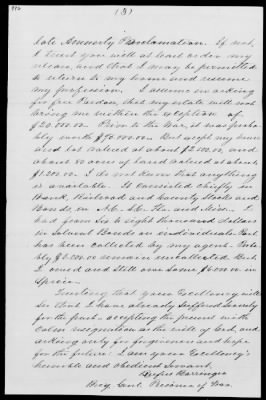 (3)
late Amnesty Proclamation. If not,
I trust you will at least order my
release, and that I may be permitted
to return to my home and resume
my profession. I assume in asking
for free Pardon, that my estate will not
bring me within the exception of
$20,000.00. Prior to the War, it was proba-
bly worth $90,000.00. But except my house
and lot valued at about $2500.00, and
about 80 acres of land valued at about
$1200.00. I do not know that anything
is available. It consisted chiefly in
Bank, Railroad and County Stocks and
Bonds in
had from six to eight thousand dollars
in Solvent Bonds on individuals. But
has been collected by my agent. Proba-
bly $2000.00 remain uncollected. But
I owned and still own some $6000.00 in
Specie.
Trusting that your Excellency will
see that I have already suffered severely
for the past, accepting the present with
calm resignation as the will of God, and
asking only for forgiveness and hope
for the future: I am your Excellency's
humble and obedient Servant,
Rufus Barringer
Brig. Genl. Prisoner of War.